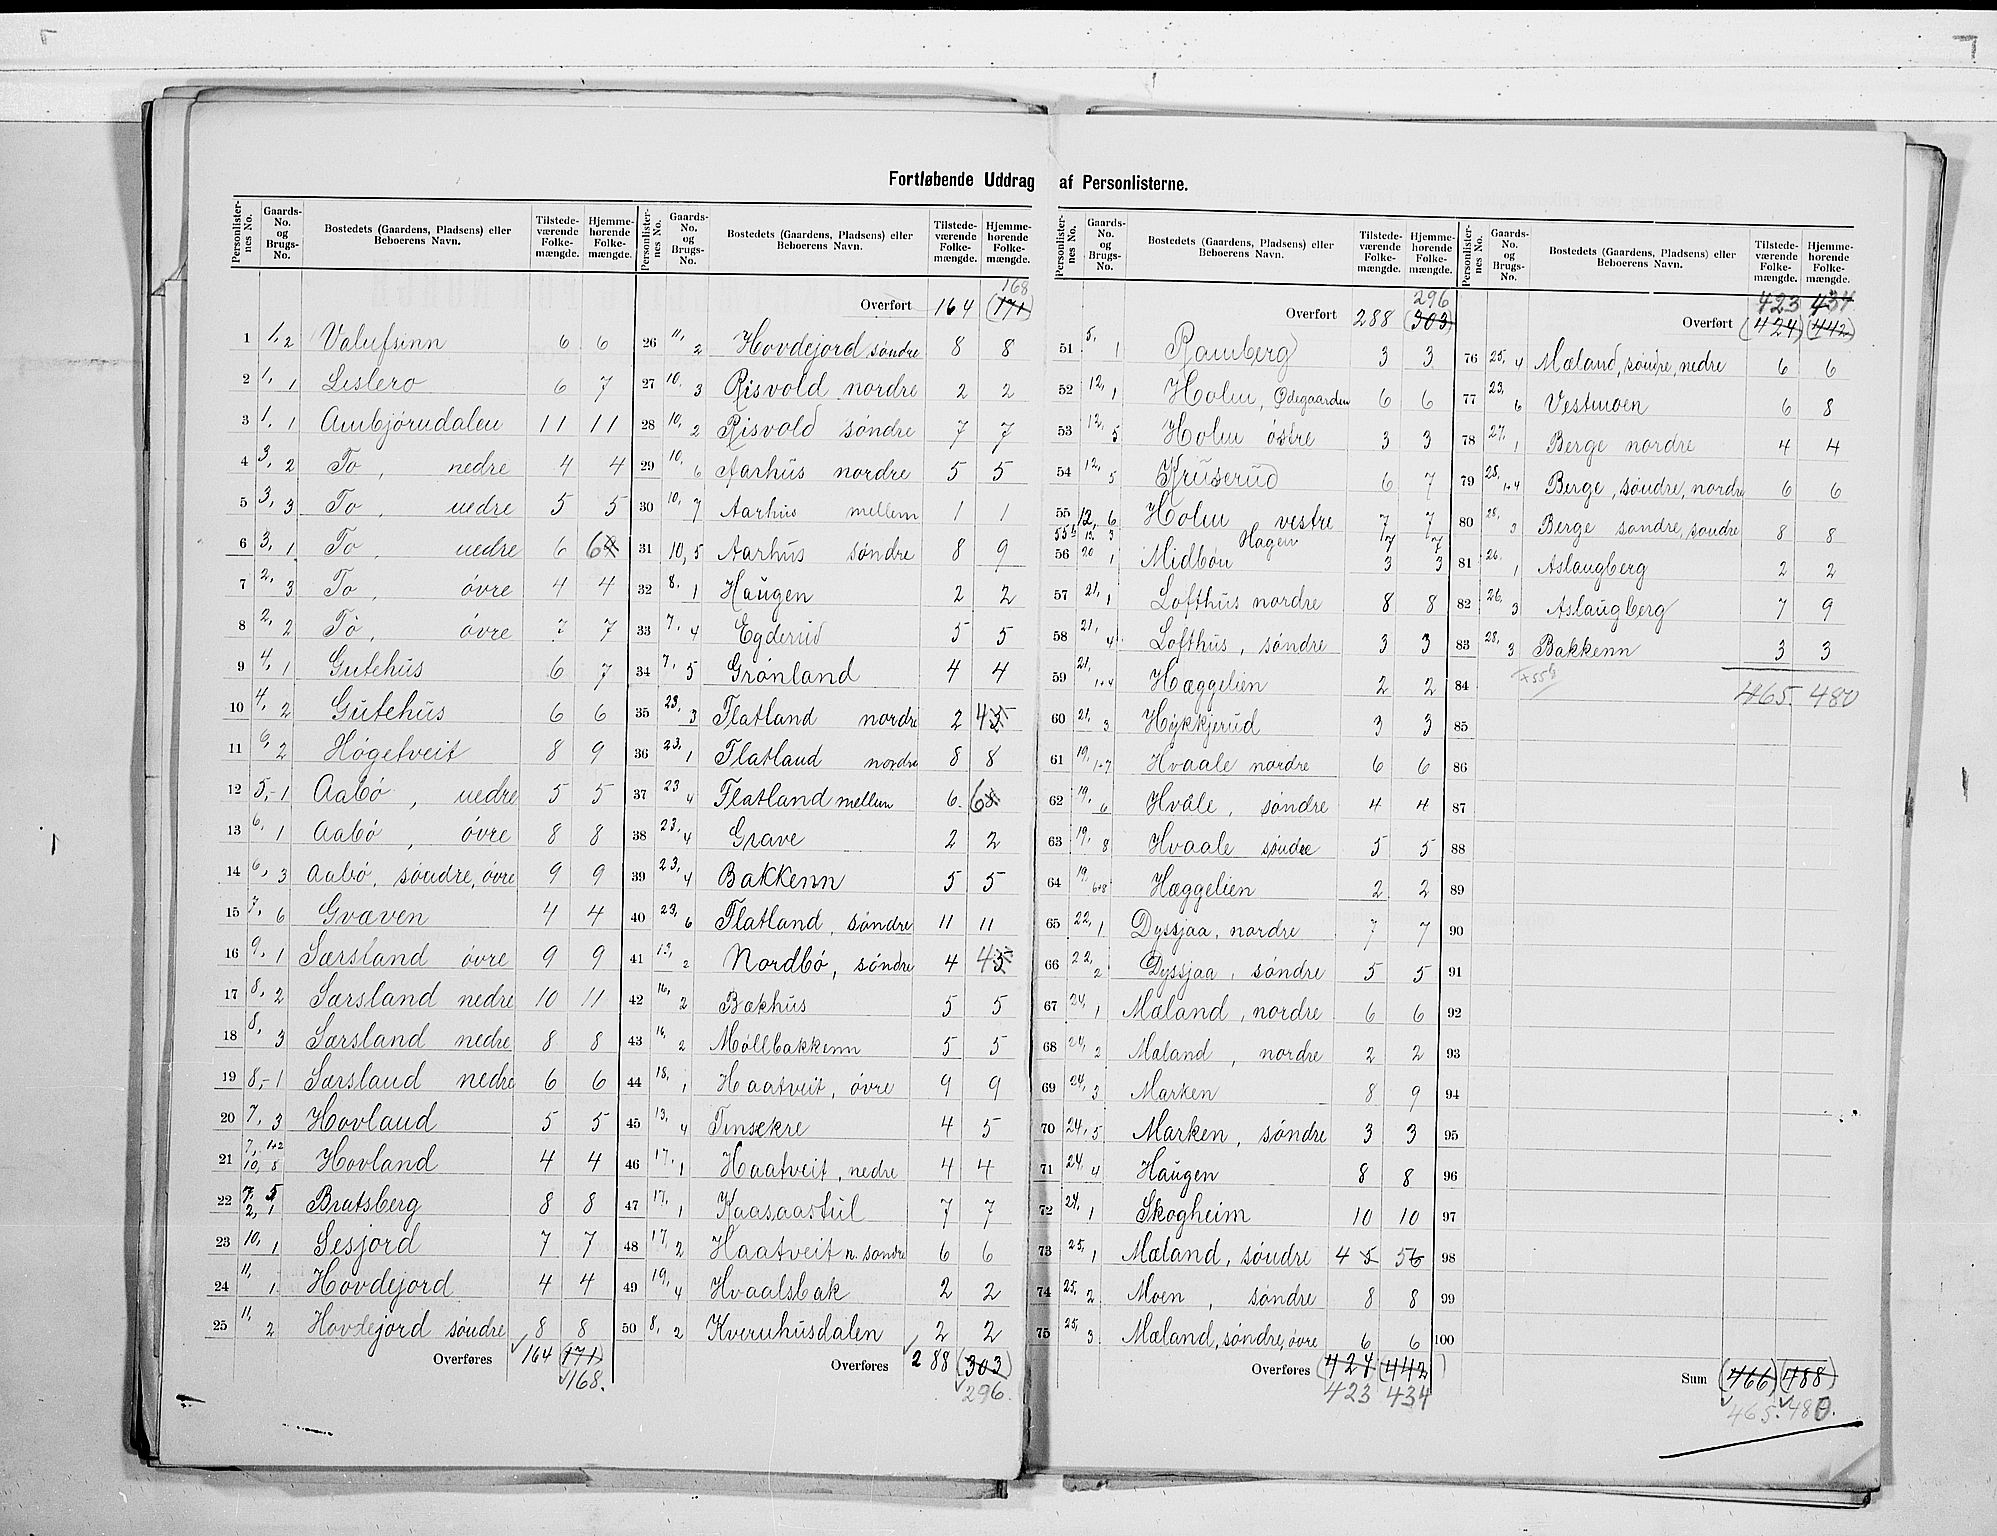 Fortløbende Uddrag af Personlisterne.
Personlister-nes No. Gaards-No. og Brugs-No. Bostedets (Gaardens, Pladsens) eller Beboerens Navn. Tilstede-værende Folke-mængde. Hjemme-hørende Folke-mængde.
1 1, 2 Valufsinn 6 6
2 1, 1 Leslero 6 7
3 1, 1 Ambjörndalen 11 11
4 3, 2 To, nedre 4 4
5 3, 3 To, nedre 5 5
6 3, 1 To, nedre 6 6
7 2, 3 To, övre 4 4
8 2, 2 To, övre 7 7
9 4, 1 Gutehus 6 7
10 4, 2 Gutehus 6 6
11 6, 2 Högetveit 8 9
12 5, 1 Aabö, nedre 5 5
13 6, 1 Aabö, övre 8 8
14 6, 3 Aabö, söndre, övre 9 9
15 7, 6 Gvæven 4 4
16 9, 1 Særsland övre 9 9
17 8, 2 Særsland nedre 10 11
18 8, 3 Særsland nedre 8 8
19 8, 1 Særsland nedre 6 6
20 7, 3 Hovland 5 5
21 7, 1+2 10, 8 Hovland 4 4
22 7, 5 2, 1 Bratsberg 8 8
23 10, 1 Sesjord 7 7
24 11, 1 Hovdejord 4 4
25 11, 2 Hovdejord söndre 8 8
Overføres 164 (171)
168.
168
Overført 164 (171)
26 11, 2 Hovdejord søndre 8 8
27 10, 3 Risvold nordre 2 2
28 10, 2 Risvold søndre 7 7
29 10, 6 Aarhus nordre 5 5
30 10, 7 Aarhus mellem 1 1
31 10, 5 Aarhus søndre 8 9
32 8, 1 Haugen 2 2
33 7, 4 Egderud 5 5
34 7, 5 Grönland 4 4
35 23, 3 Flatland nordre 2 4 5
36 23, 1 Flatland nordre 8 8
37 23 4 Flatland mellem 6 6 8
38 23, 4 Grave 2 2
39 23, 4 Bakkenn 5 5
40 23, 6 Flatland, søndre 11 11
41 13, 2 Nordbö, søndre 4 4 5
42 16, 2 Bakhus 5 5
43 16, 2 Møllbakkenn 5 5
44 18, 1 Haatveit, övre 9 9
45 13, 4 Tinsekre 4 5
46 17, 1 Haatveit, nedre 4 4
47 17, 1 Kaasaastul 7 7
48 17, 2 Haatveit n. søndre 6 6
49 19, 4 Hvaalsbak 2 2
50 8, 2 Kvernhusdalen 2 2
Overføres 288 (303)
296.
296
Overført 288 (303)
51 5, 1 Ramberg 3 3
52 12, 1 Holm, Ødegaarden 6 6
53 12, 5 Holm østre 3 3
54 12, 5 Kruserud 6 7
55 12, 6 Holm vestre 7 7
55b 12, 3 Hagen 7 7
56 20 1 Midbön 3 3
57 21, 1 Lofthus nordre 8 8
58 21, 4 Lofthus, søndre 3 3
59 21, 1+4 Hæggelien 2 2
60 21, 3 Hykkjerud 3 3
61 19, 1+7 Hvaale nordre 6 6
62 19, 6 Hvåle, søndre 4 4
63 19, 8 Hvaale søndre 5 5
64 19, 6+8 Hæggelien 2 2
65 22, 1 Dyssjaa, nordre 7 7
66 22, 2 Dyssjaa, søndre 5 5
67 24, 1 Mæland, nordre 6 6
68 24, 2 Mæland, nordre 2 2
69 24, 3 Marken 8 9
70 24, 5 Marken, søndre 3 3
71 24, 4 Haugen 8 8
72 24, 1 Skogheim 10 10
73 25, 1 Mæland, søndre 4 5 5 6
74 25, 2 Moen, søndre 8 8
75 25, 3 Mæland, søndre, övre 6 6
Overføres (424) (442)
423 434
423 434
Overført (424) (442)
76 25, 4 Mæland, søndre, nedre 6 6
77 23, 6 Vestmoen 6 8
78 27, 1 Berge nordre 4 4
79 28, 1+4 Berge, søndre, nordre 6 6
80 28, 3 Berge søndre, søndre 8 8
81 26, 1 Aslaugberg 2 2
82 26, 3 Aslaugberg 7 9
83 28, 3 Bakkenn 3 3
84 +55b 465. 480
85
86
87
88
89
90
91
92
93
94
95
96
97
98
99
100
Sum (466) (488)
465. 480.